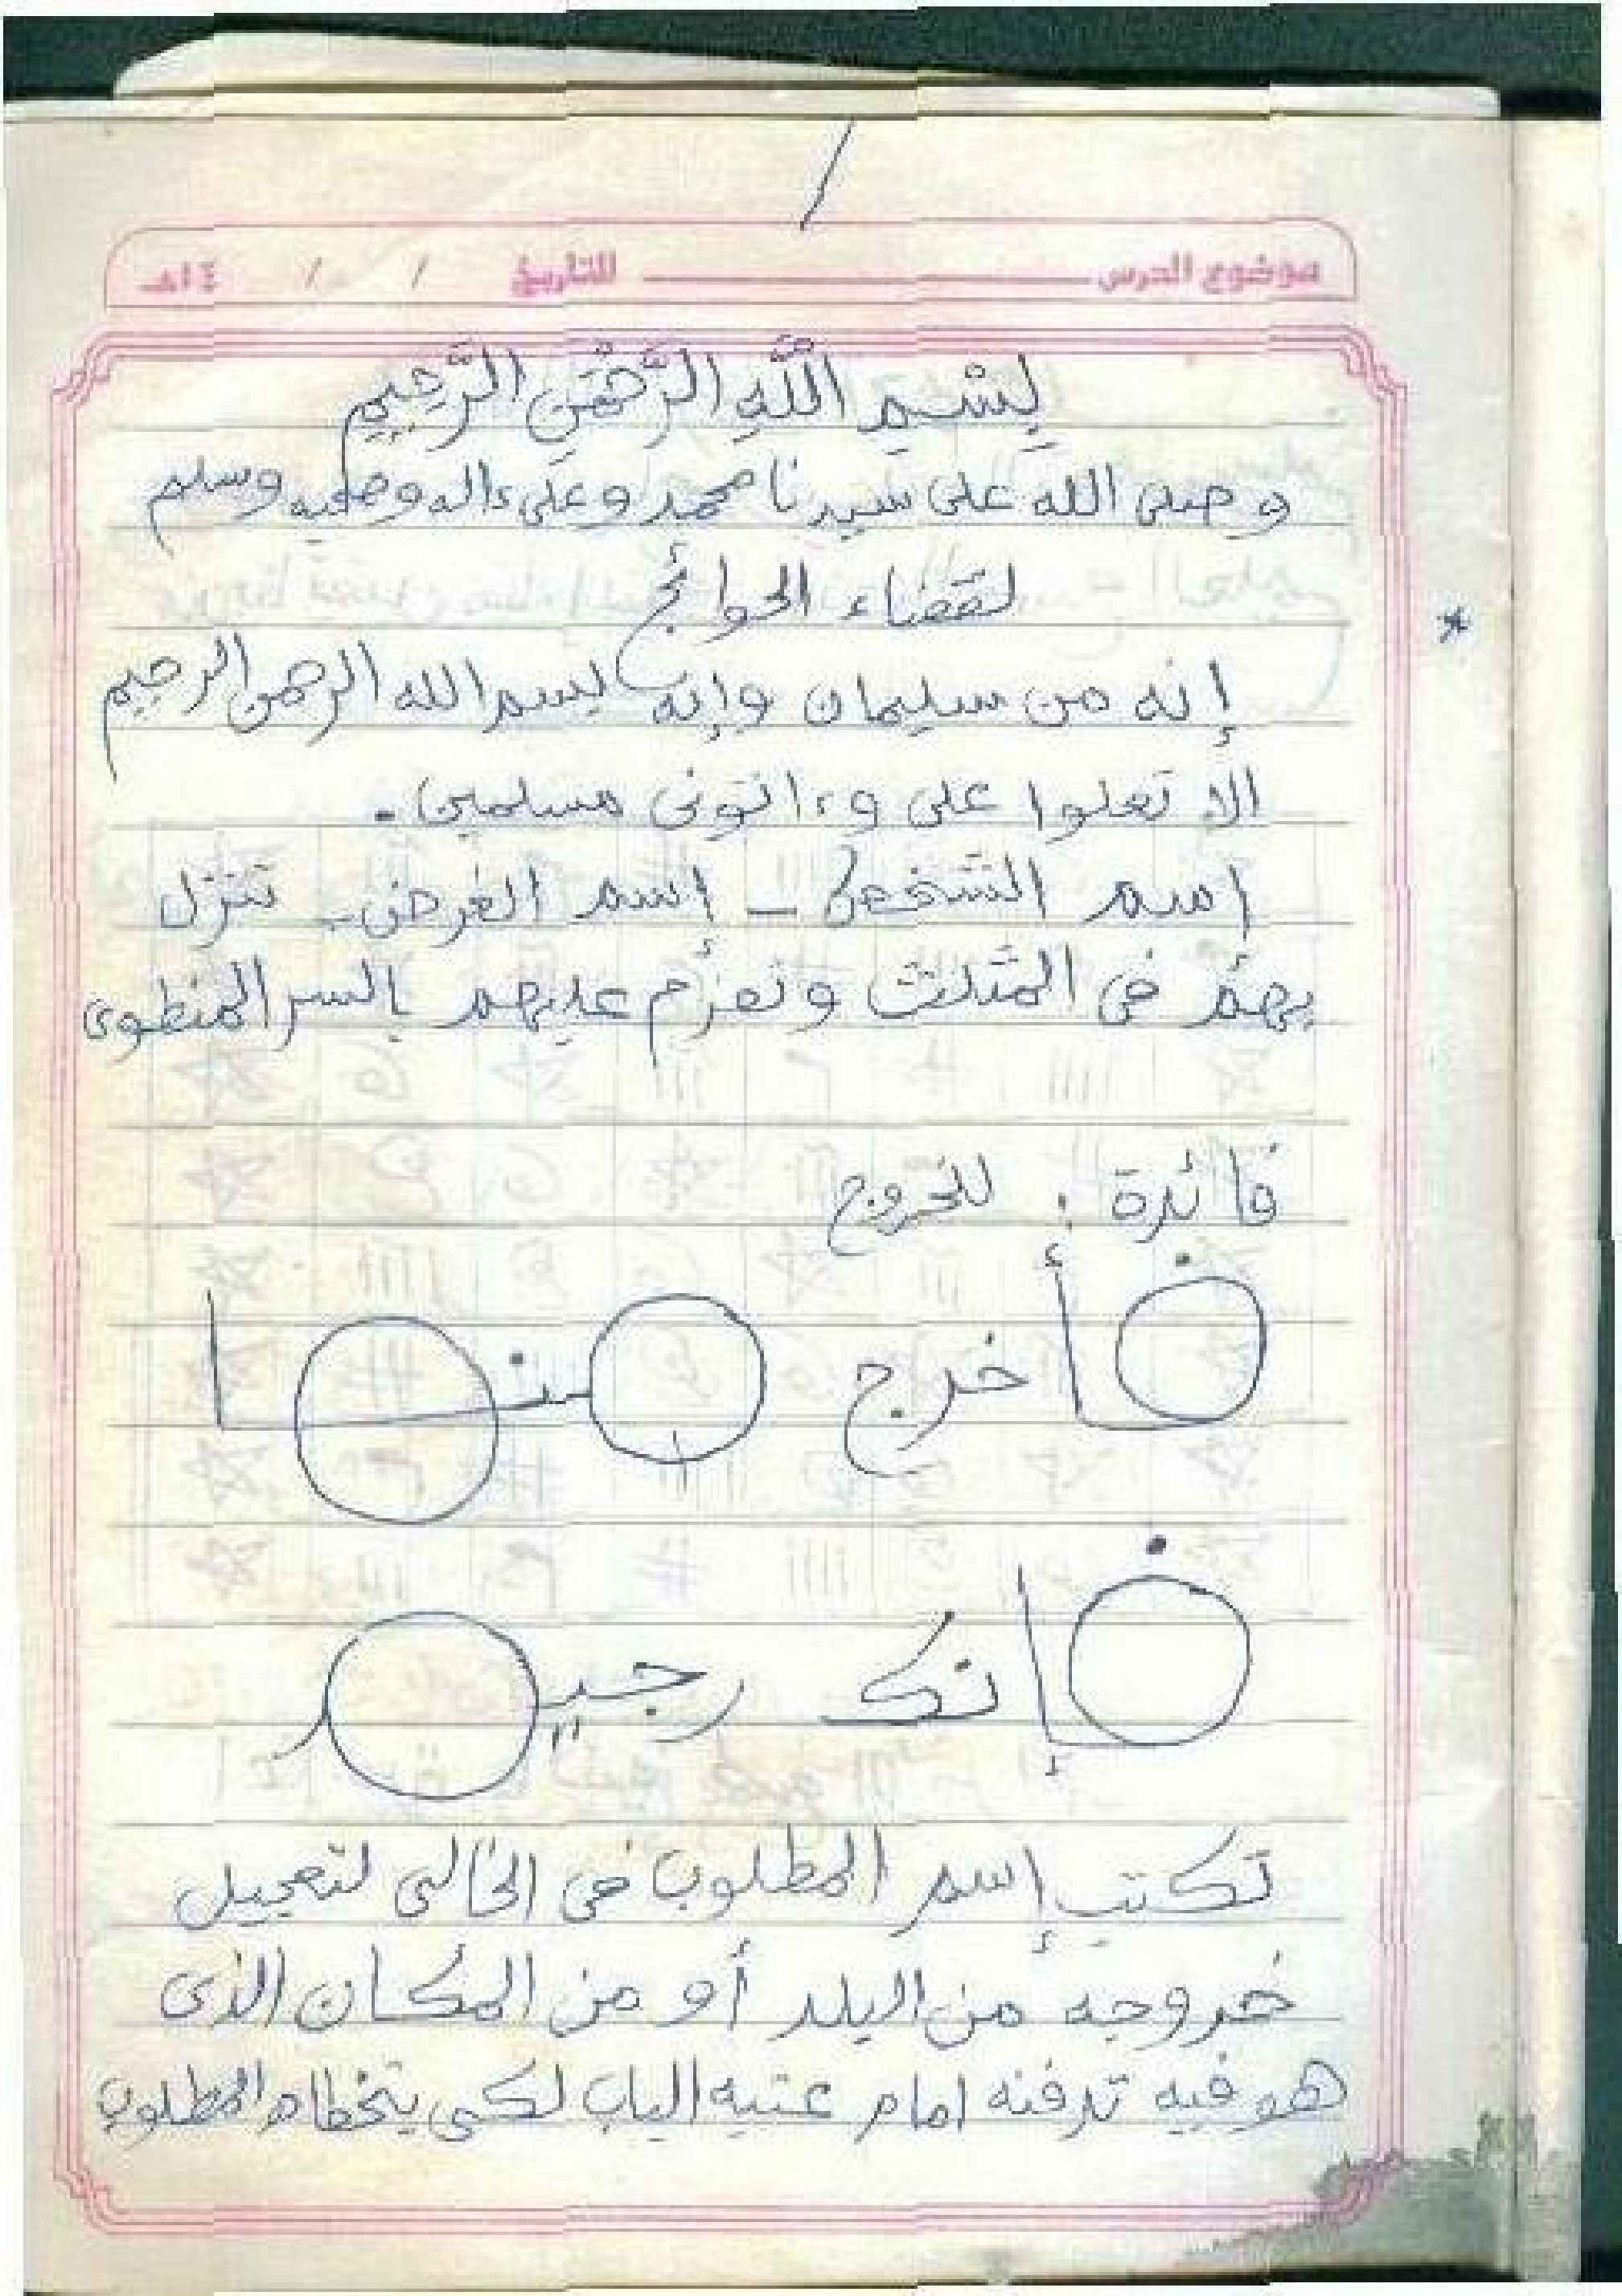 /
موضوع الدرس ــــــــ التاريخ / / ١٤هـ
بِسْمِ اللَّهِ الرَّحْمَنِ الرَّحِيمِ
وصلى الله على سيدنا محمد وعلى ءاله وصحبه وسلم
لقضاء الحوائج
* إنه من سليمان وإنه بسم الله الرحمن الرحيم
الا تعلوا على وءاتونى مسلمين.
اسم الشخص - اسم الغرض - تنزل
بهم فى المثلث وتعزم عليهم بالسر المنطوى
فائدة : للخروج
فأخرج منها
فإنك رجيم
تكتب إسم المطلوب فى الخالى لتعجيل
خروجه من البلد أو من المكان الذى
هو فيه تدفنه امام عتبه الباب لكى يتخطاه المطلوب